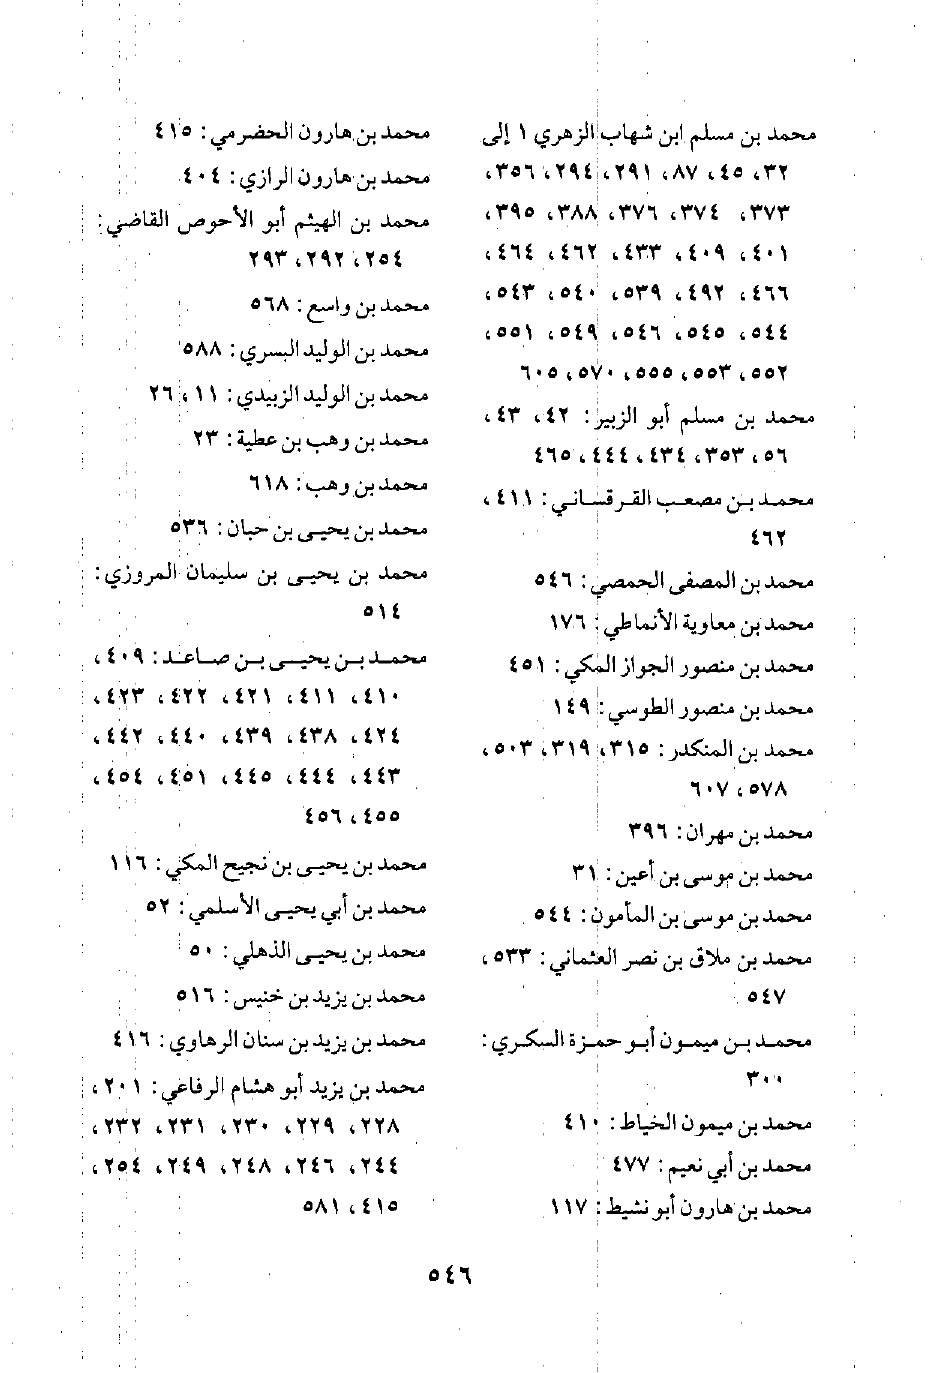 محمد بن مسلم ابن شهاب الزهري ١ إلى
٣٢، ٤٥، ٨٧، ٢٩١، ٢٩٤، ٣٥٦،
٣٧٣، ٣٧٤، ٣٧٦، ٣٨٨، ٣٩٥،
٤٠١، ٤٠٩، ٤٣٣، ٤٦٢، ٤٦٤،
٤٦٦، ٤٩٢، ٥٣٩، ٥٤٠، ٥٤٣،
٥٤٤، ٥٤٥، ٥٤٦، ٥٤٩، ٥٥١،
٥٥٢، ٥٥٣، ٥٥٥، ٥٧٠، ٦٠٥
محمد بن مسلم أبو الزبير: ٤٢، ٤٣،
٥٦، ٣٥٣، ٤٣٤، ٤٤٤، ٤٦٥
محمد بن مصعب القرقساني: ٤١١،
٤٦٢
محمد بن المصفى الحمصي: ٥٤٦
محمد بن معاوية الأنماطي: ١٧٦
محمد بن منصور الجواز المكي: ٤٥١
محمد بن منصور الطوسي: ١٤٩
محمد بن المنكدر: ٣١٥، ٣١٩، ٥٠٣،
٥٧٨، ٦٠٧
محمد بن مهران: ٣٩٦
محمد بن موسى بن أعين: ٣١
محمد بن موسى بن المأمون: ٥٤٤
محمد بن ملاق بن نصر العثماني: ٥٣٣،
٥٤٧
محمد بن ميمون أبو حمزة السكري:
٣٠٠
محمد بن ميمون الخياط: ٤١٠
محمد بن أبي نعيم: ٤٧٧
محمد بن هارون أبو نشيط: ١١٧
محمد بن هارون الحضرمي: ٤١٥
محمد بن هارون الرازي: ٤٠٤
محمد بن الهيثم أبو الأحوص القاضي:
٢٥٤، ٢٩٢، ٢٩٣
محمد بن واسع: ٥٦٨
محمد بن الوليد البسري: ٥٨٨
محمد بن الوليد الزبيدي: ١١، ٢٦
محمد بن وهب بن عطية: ٢٣
محمد بن وهب: ٦١٨
محمد بن يحيى بن حبان: ٥٣٦
محمد بن يحيى بن سليمان المروزي:
٥١٤
محمد بن يحيى بن صاعد: ٤٠٩،
٤١٠، ٤١١، ٤٢١، ٤٢٢، ٤٢٣،
٤٢٤، ٤٣٨، ٤٣٩، ٤٤٠، ٤٤٢،
٤٤٣، ٤٤٤، ٤٤٥، ٤٥١، ٤٥٤،
٤٥٥، ٤٥٦
محمد بن يحيى بن نجيح المكي: ١١٦
محمد بن أبي يحيى الأسلمي: ٥٢
محمد بن يحيى الذهلي: ٥٠
محمد بن يزيد بن خنيس: ٥١٦
محمد بن يزيد بن سنان الرهاوي: ٤١٦
محمد بن يزيد أبو هشام الرفاعي: ٢٠١،
٢٢٨، ٢٢٩، ٢٣٠، ٢٣١، ٢٣٢،
٢٤٤، ٢٤٦، ٢٤٨، ٢٤٩، ٢٥٤،
٤١٥، ٥٨١
٥٤٦